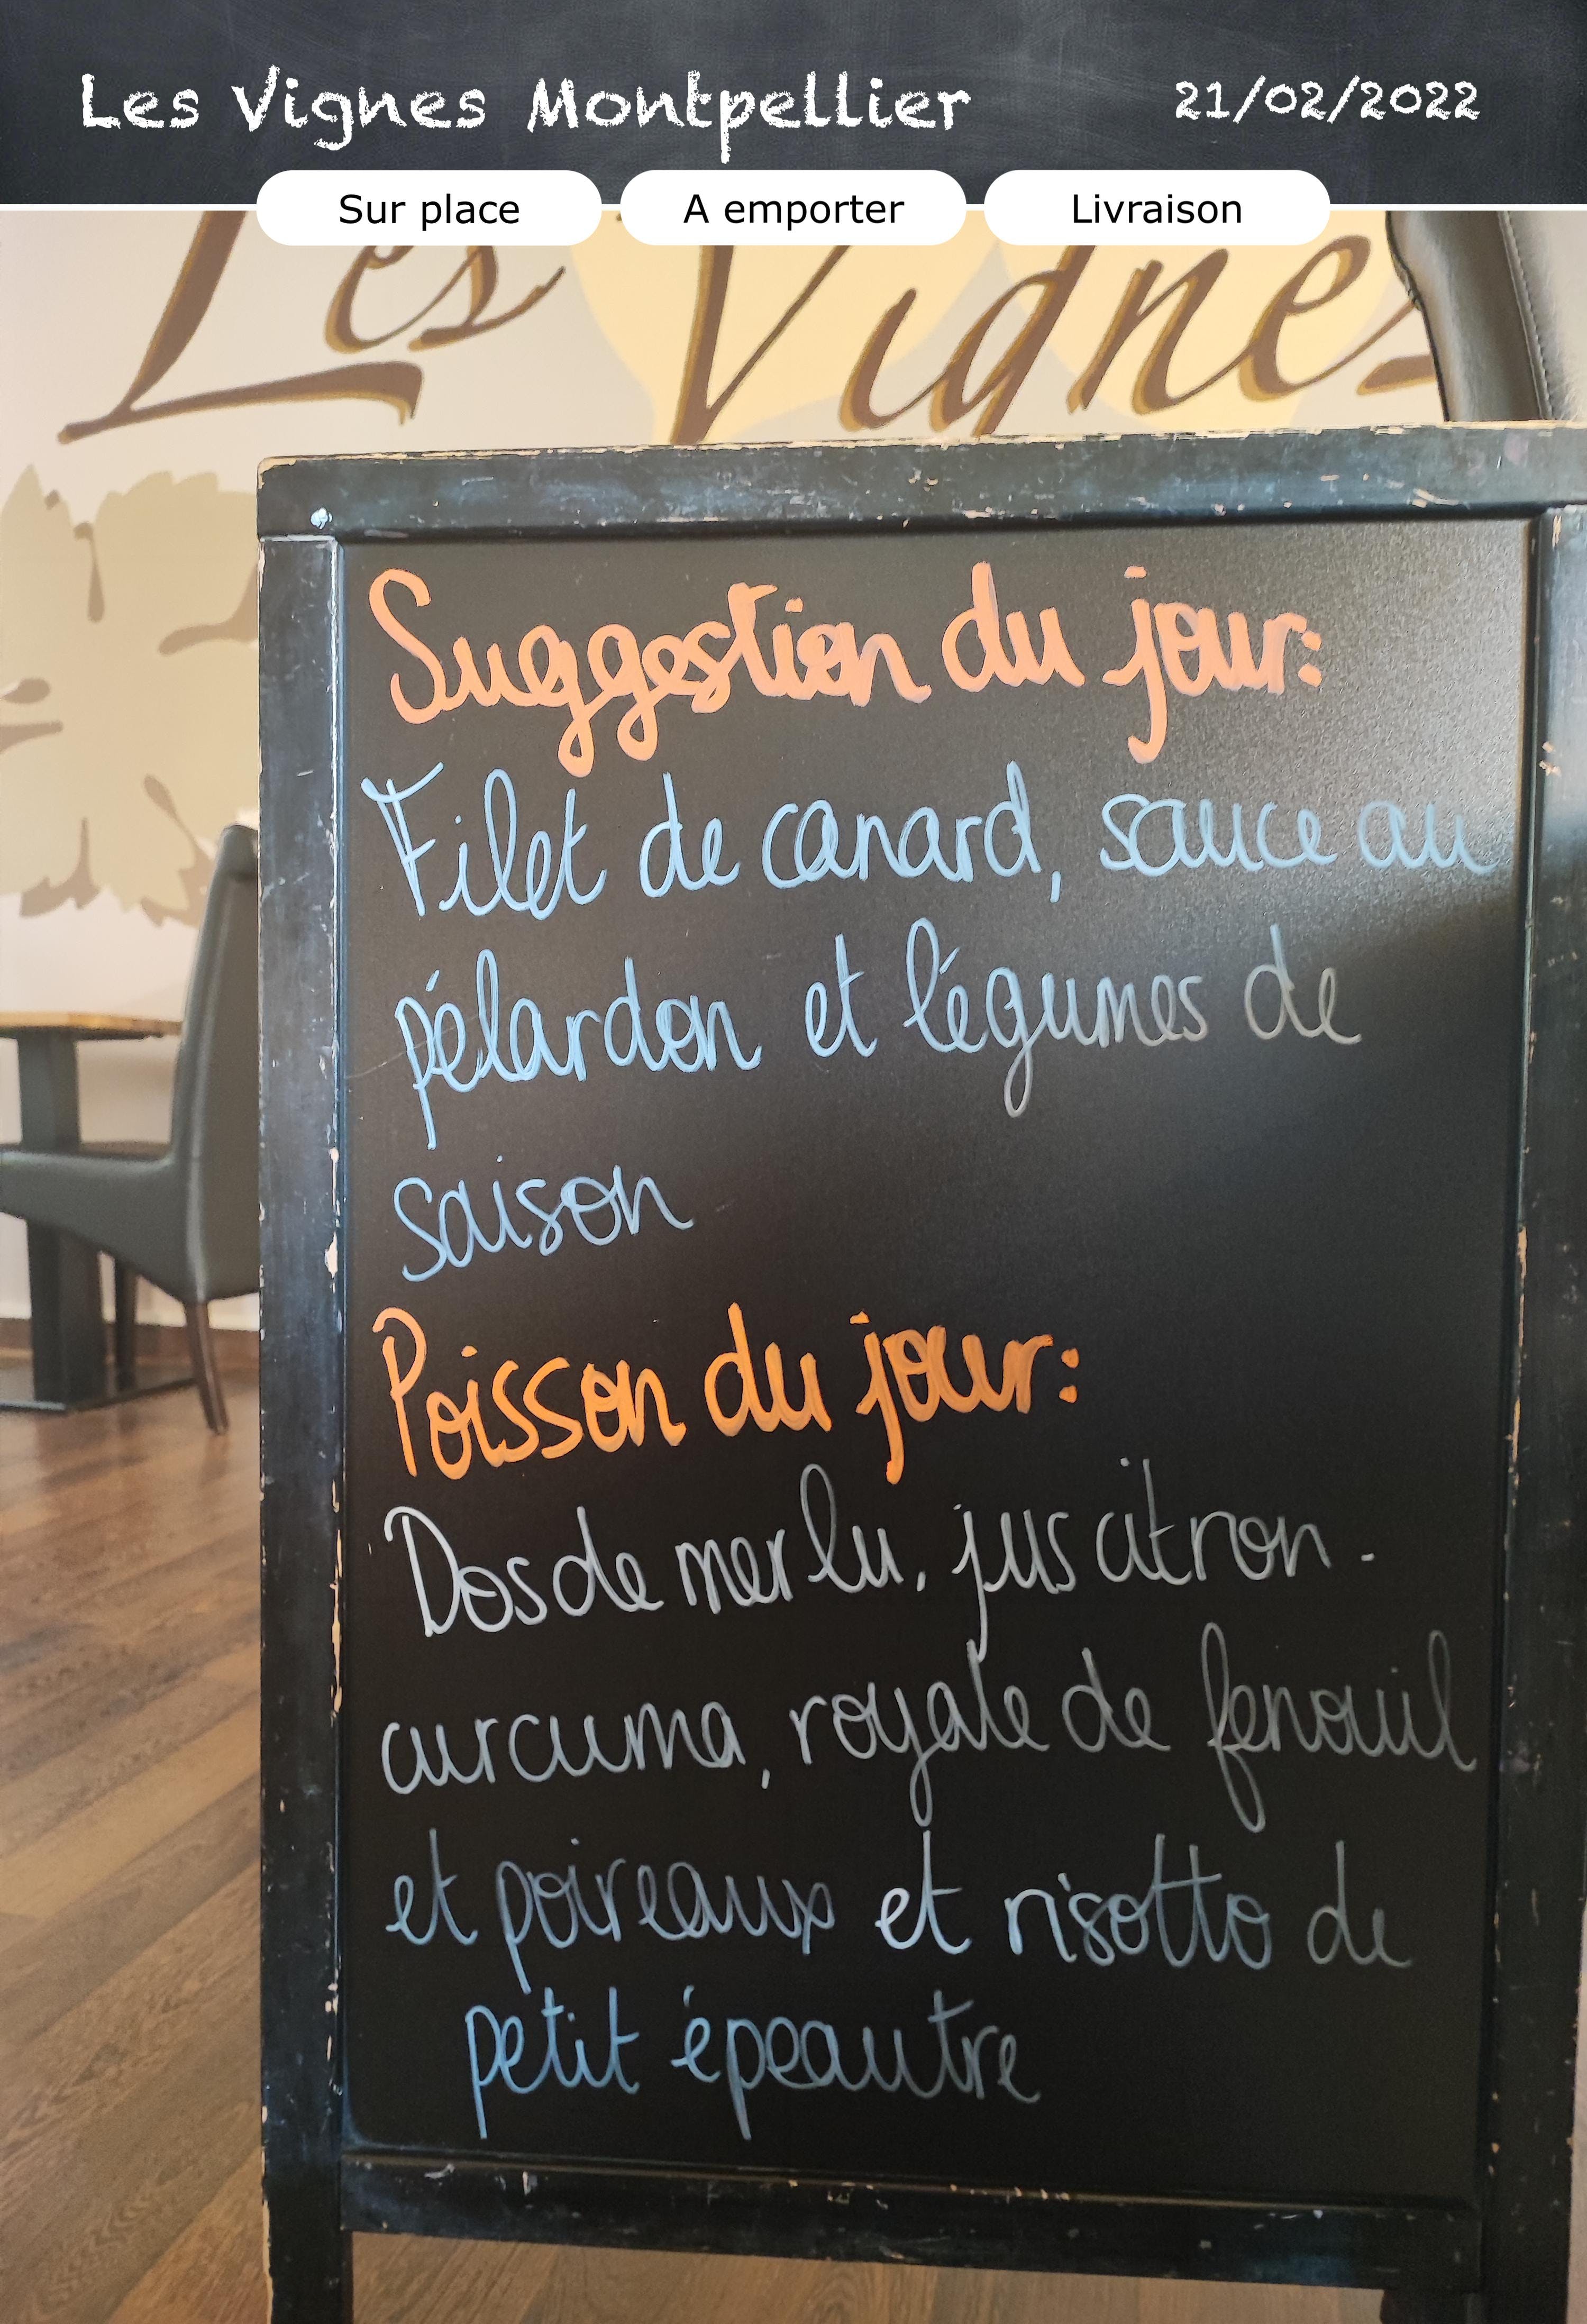 Les Vignes Montpellier 21/02/2022
Sur place A emporter Livraison
Les Vignes
Suggestion du jour:
Filet de canard, sauce au
pélardon et légumes de
saison
Poisson du jour:
Dos de merlu, jus citron -
curcuma, royale de fenouil
et poireaux et risotto de
petit épeautre